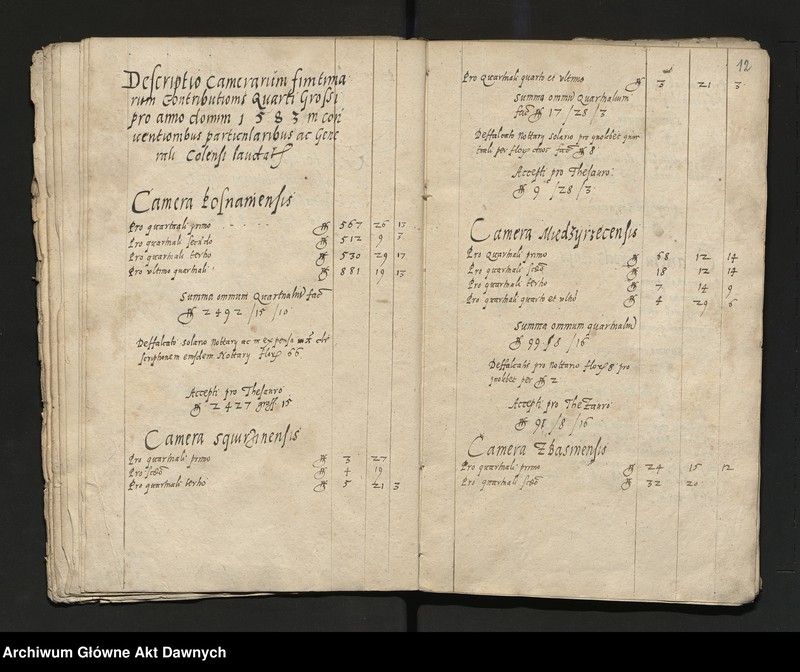 Descriptio Camerarum finitima
rum Contributionis Quarti Grossi
pro anno domini 1583 in con
uentionibus particularibus ac Gene
rali Colensi laudat
Camera Posnaniensis
Pro quartuali primo 567 26 13
Pro quartuali secundo 512 9 3
Pro quartuali tertio 530 29 17
Pro vltimo quartuali 881 19 13
Summa omnium Quartualium facit
2492 / 15 / 10
Deffalcato solario Nottary ac
scriptionem eiusdem Nottary flor 66
Accepti pro Thesauro
2427 gross 15
Camera
Pro quartuali primo 3 27
Pro 4 19
Pro quartuali tertio 5 21 3
12
Pro Quartuali quarto et vltimo 3 21 3
Summa omnium Quartualium
17 / 28 / 3
Deffalcato Nottary solario pro quolibet quar
tuali per flor duos 8
Accepti pro Thesauro
9 / 28 / 3
Camera Miedzyrzecensis
Pro Quartuali primo 68 12 14
Pro quartuali 18 12 14
Pro quartuali tertio 7 14 9
Pro quartuali quarto et vltimo 4 29 6
Summa omnium quartualium
99 / 8 / 16
Deffalcatis pro Nottario flor 8 pro
quolibet per 2
Accepti pro Thezauro
91 / 8 / 16
Camera Zbasinensis
Pro quartuali primo 24 15 12
Pro quartuali 32 20
Archiwum Główne Akt Dawnych